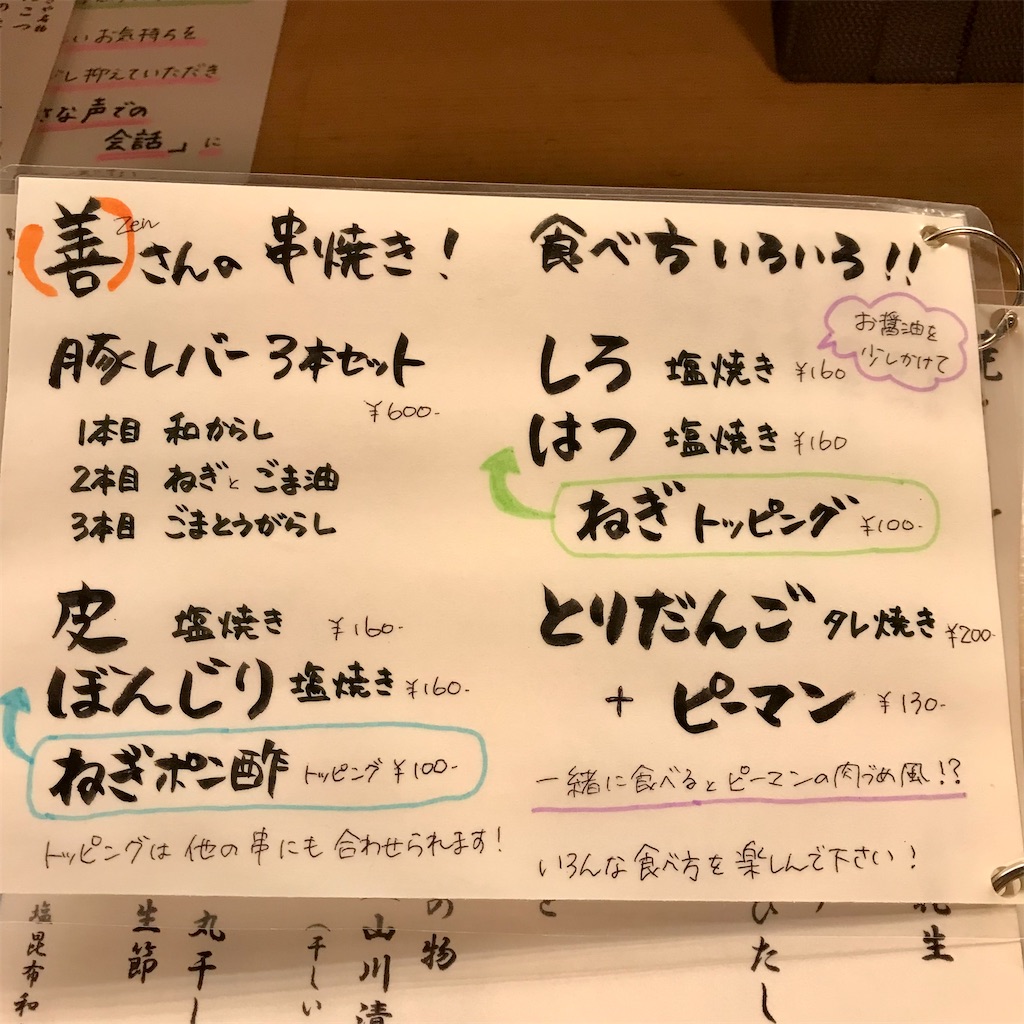 いお気持ちを
し抑えていただき
さな声での
会話」に
善さんの 串焼き!
Zen
豚レバー 3本セット
¥600-
1本目 和からし
2本目 ねぎとごま油
3本目 ごまとうがらし
皮 塩焼き ¥160-
ぼんじり 塩焼き ¥160-
ねぎポン酢 トッピング ¥100-
トッピングは他の串にも合わせられます!
食べ方いろいろ!!
お醤油を
少しかけて
しろ 塩焼き ¥160
はつ 塩焼き ¥160
ねぎトッピング ¥100-
とりだんご タレ焼き ¥200-
+ ピーマン ¥130-
一緒に食べるとピーマンの肉づめ風!?
いろんな食べ方を楽しんで下さい!
塩昆布和
生節
丸干し
(干しい
山川漬
の物
と
ひたし
花生